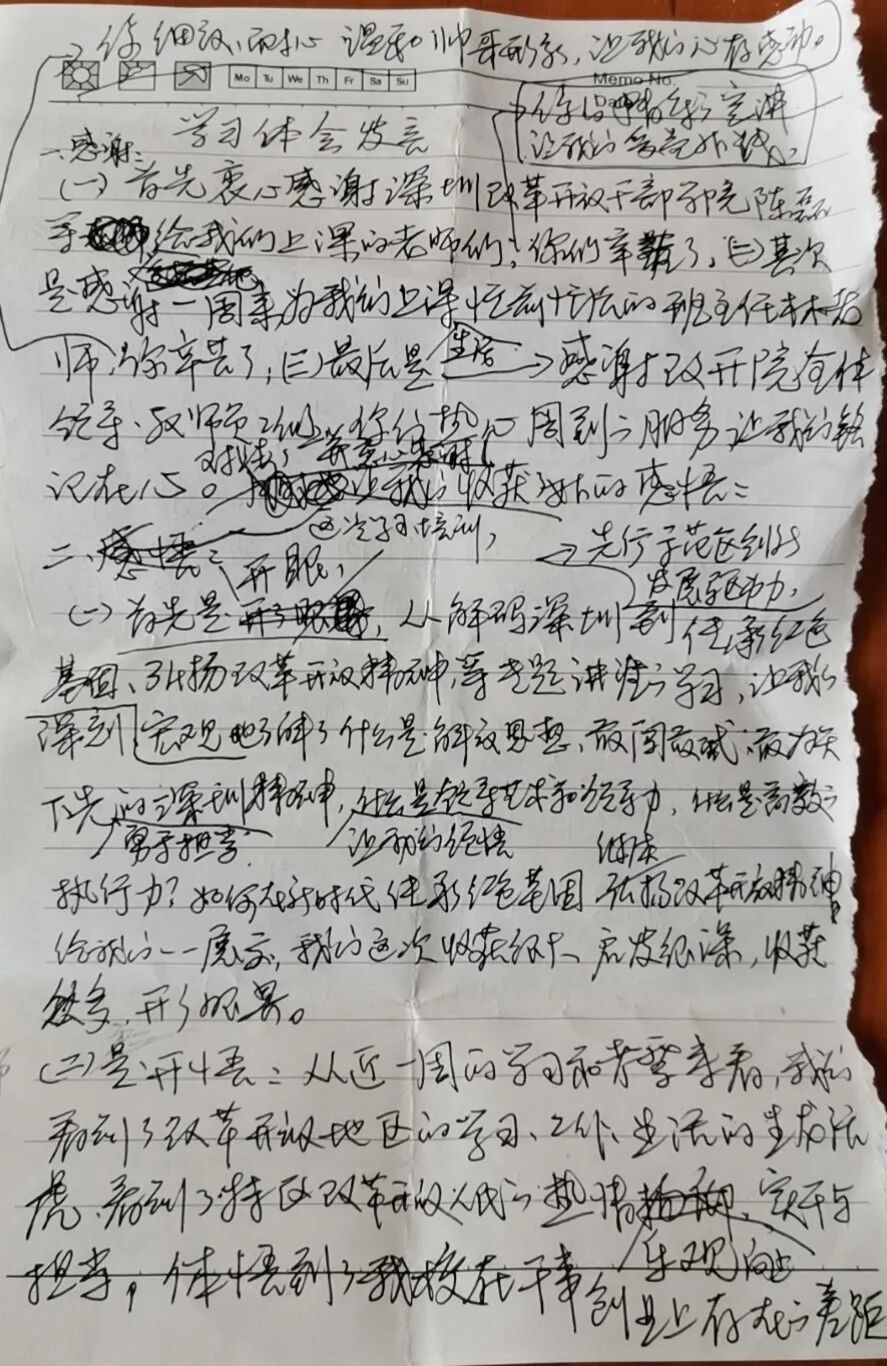 你细致、耐心、温和、帅哥形象,让我们心存感动。
Mo Tu We Th Fr Sa Su
Memo No.
Da
学习体会发言
你们精彩宣讲
让我们
一、感谢:
(一)首先衷心感谢深圳改革开放干部学院陈磊
等给我们上课的老师们,你们辛苦了,(二)其次
是感谢一周来为我们上课忙前忙后的班主任林老
师,你辛苦了,(三)最后是
生活
感谢改开院全体
领导、教师员工们,你们热心周到的服务让我们铭
记在心。
让我们收获的感悟:
这次学习培训,
二、感悟:
开眼,
先行示范区创
发展驱动力,
(一)首先是 从解码深圳到传承红色
基因、弘扬改革开放精神等专题讲座的学习,让我们
深刻宏观地了解了什么是解放思想、敢闯敢试、敢为天
下先的深圳精神,什么是领导艺术和领导力,什么是高效的
勇于担当
让我们领悟
继续
执行力?如何在新时代传承红色基因 弘扬改革开放精神
给我们一一展示,我们这次收获很大、启发很深,收获
颇多,开了眼界。
(二)是开悟:从近一周的学习和考察来看,我们
看到了改革开放地区的学习、工作、生活的生龙活
虎、看到了特区改革开放人民的热情 实干与
乐观向上
担当,体悟到了我校在干事创业上存在的差距